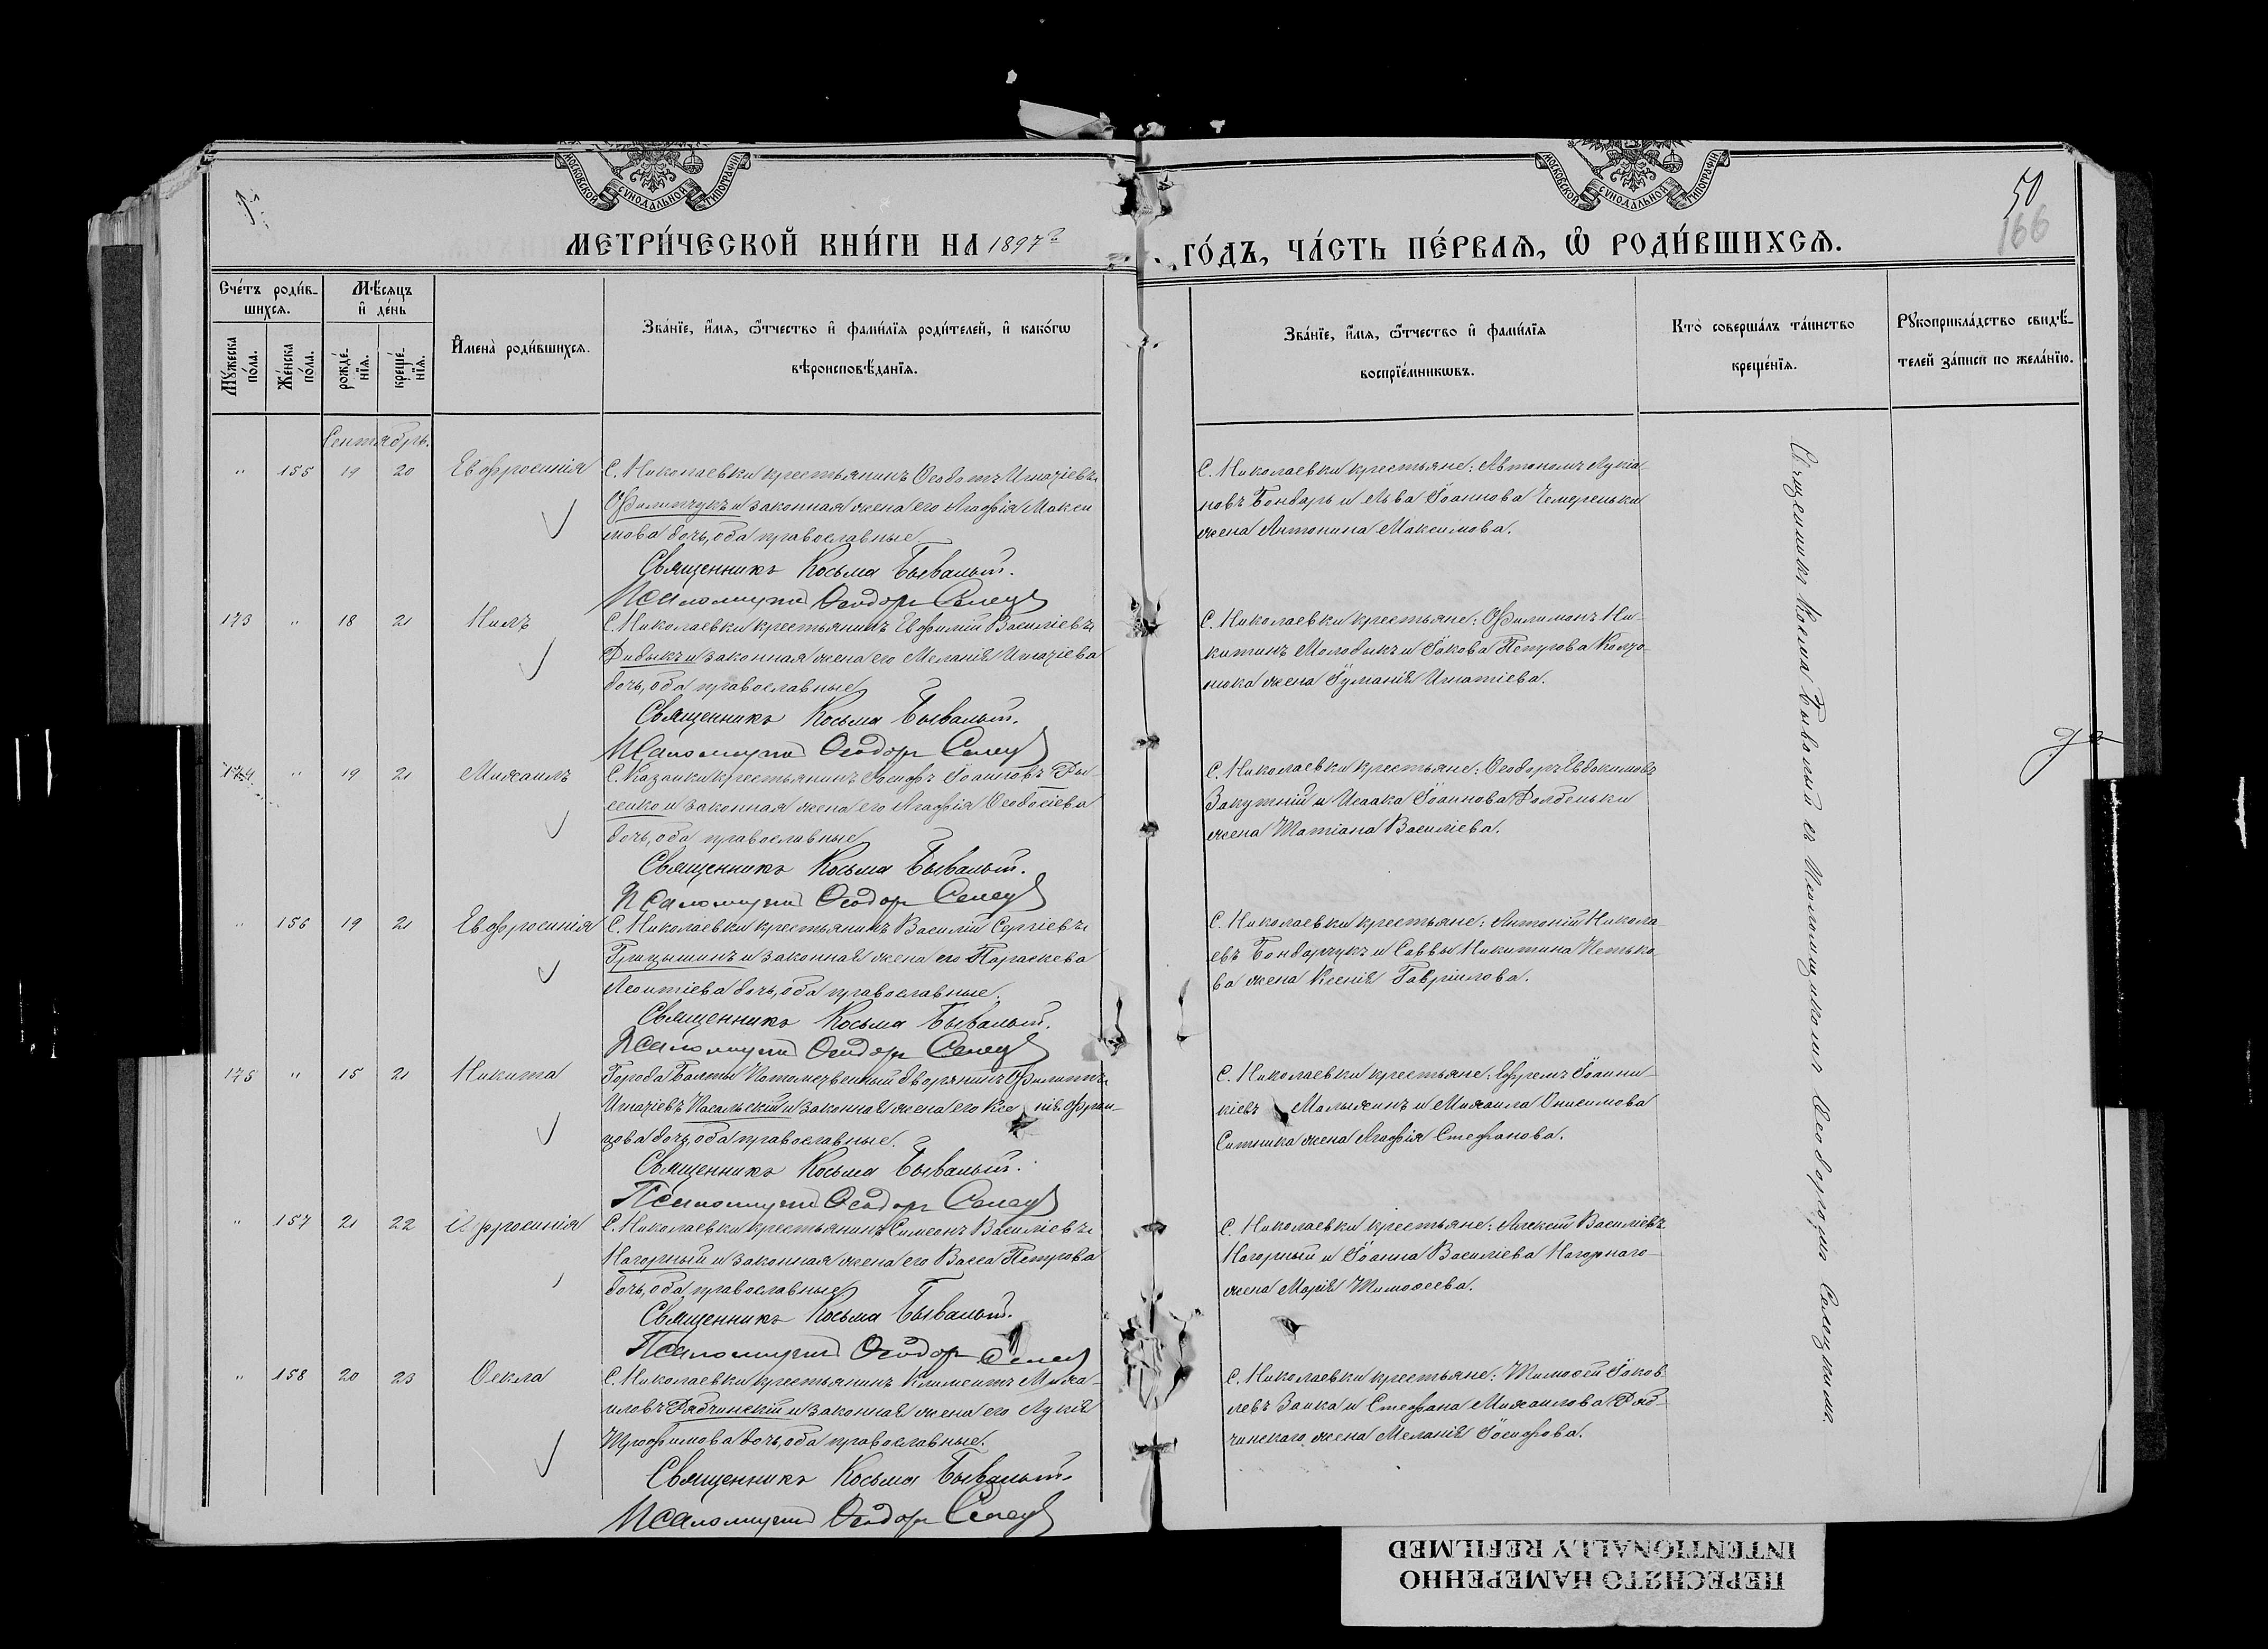 МОСКОВСКОЙ СѴНОДАЛЬНОЙ ТИПОГРАФІИ
МОСКОВСКОЙ СѴНОДАЛЬНОЙ ТИПОГРАФІИ
50
166
МЕТРИ́ЧЕСКОЙ КНИ́ГИ НА 1897 ГО́ДЪ, ЧА́СТЬ ПЕ́РВАѦ, Ѡ҆ РОДИ́ВШИХСѦ.
Сче́тъ роди́в-
шихсѧ.
Мѣ́сѧцъ
и҆ де́нь
Мꙋ́жеска по́ла.
Же́нска по́ла.
рожде́-
нїѧ.
креще́-
нїѧ.
И҆мена̀ роди́вшихсѧ.
Зва́нїе, и҆́мѧ, ѻ҆́тчество и҆ фами́лїѧ роди́телей, и҆ како́гѡ
вѣроисповѣ́данїѧ.
Зва́нїе, и҆́мѧ, ѻ҆́тчество и҆ фами́лїѧ
воспрїе́мникѡвъ.
Кто̀ соверша́лъ та́инство
креще́нїѧ.
Рꙋкоприкла́дство свидѣ́-
телей за́писи по жела́нїю.
Сентябрь.
" 155 19 20 Евфросинія
С. Николаевки крестьянинъ Ѳеодотъ Игнатіевъ
Филипчукъ и законная жена его Агафія Макси
мова дочь, оба православные
Священникъ Косьма Бывалый.
Псаломщикъ Ѳеодоръ Селец
С. Николаевки крестьяне: Автономъ Лукіа-
новъ Бондарь и Льва Іоаннова Чемереньки
жена Антонина Максимова.
173 " 18 21 Нилъ
С. Николаевки крестьянинъ Евфимій Василіевъ
Дидыкъ и законная жена его Меланія Игнатіева
дочь, оба православные
Священникъ Косьма Бывалый.
Псаломщикъ Ѳеодоръ Селец
С. Николаевки крестьяне: Филимонъ Ни-
китинъ Молодыкъ и Іакова Петрова
жена Игнатіева.
174 " 19 21 Михаилъ
С. Казанки крестьянинъ Іосифъ Іоанновъ
сенко и законная жена его Агафія Ѳеодосіева
дочь, оба православные
Священникъ Косьма Бывалый.
Псаломщикъ Ѳеодоръ Селец
С. Николаевки крестьяне: Ѳеодоръ Евдокимовъ
Закутній и Исаака Іоаннова Долбеньки
жена Татіана Василіева.
" 156 19 21 Евфросинія
С. Николаевки крестьянинъ Василій Сергіевъ
Грицышинъ и законная жена его Параскева
Леонтіева дочь, оба православные.
Священникъ Косьма Бывалый.
Псаломщикъ Ѳеодоръ Селец
С. Николаевки крестьяне: Антоній Никола
евъ Бондарчукъ и Саввы Никитина Петько
ва жена Ксенія Гавріилова.
175 " 15 21 Никита
Города Балты Потомственный дворянинъ Филиппъ
Игнатіевъ и законная жена его Ксенія Фран-
цова дочь, оба православные.
Священникъ Косьма Бывалый.
Псаломщикъ Ѳеодоръ Селец
С. Николаевки крестьяне: Ефремъ Іоанни-
кіевъ Малыхинъ и Михаила Онисимова
Ситника жена Агафія Стефанова.
" 157 21 22 Евфросинія
С. Николаевки крестьянинъ Симеонъ Василіевъ
Нагорный и законная жена его Васса Петрова
дочь, оба православные
Священникъ Косьма Бывалый.
Псаломщикъ Ѳеодоръ Селец
С. Николаевки крестьяне: Алексій Василіевъ
Нагорный и Іоанна Василіева Нагорнаго
жена Марія Тимоѳеева.
" 158 20 23 Ѳекла
С. Николаевки крестьянинъ Климентъ Миха-
иловъ Рабчинскій и законная жена его Лукія
Трофимова дочь, оба православные.
Священникъ Косьма Бывалый.
Псаломщикъ Ѳеодоръ Селец
С. Николаевки крестьяне: Тимоѳей Іаков
левъ Заика и Стефана Михаилова Раб-
чинскаго жена Меланія Іосифова.
Священникъ Косьма Бывалый съ Псаломщикомъ Ѳеодоромъ Селецкимъ.
ПЕРЕСНЯТО НАМЕРЕННО
INTENTIONALLY REFILMED